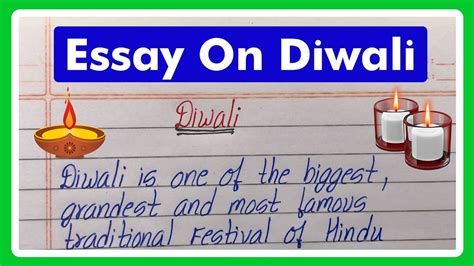 Essay On Diwali
Diwali
Diwali is one of the biggest,
grandest and most famous
traditional Festival of Hindu